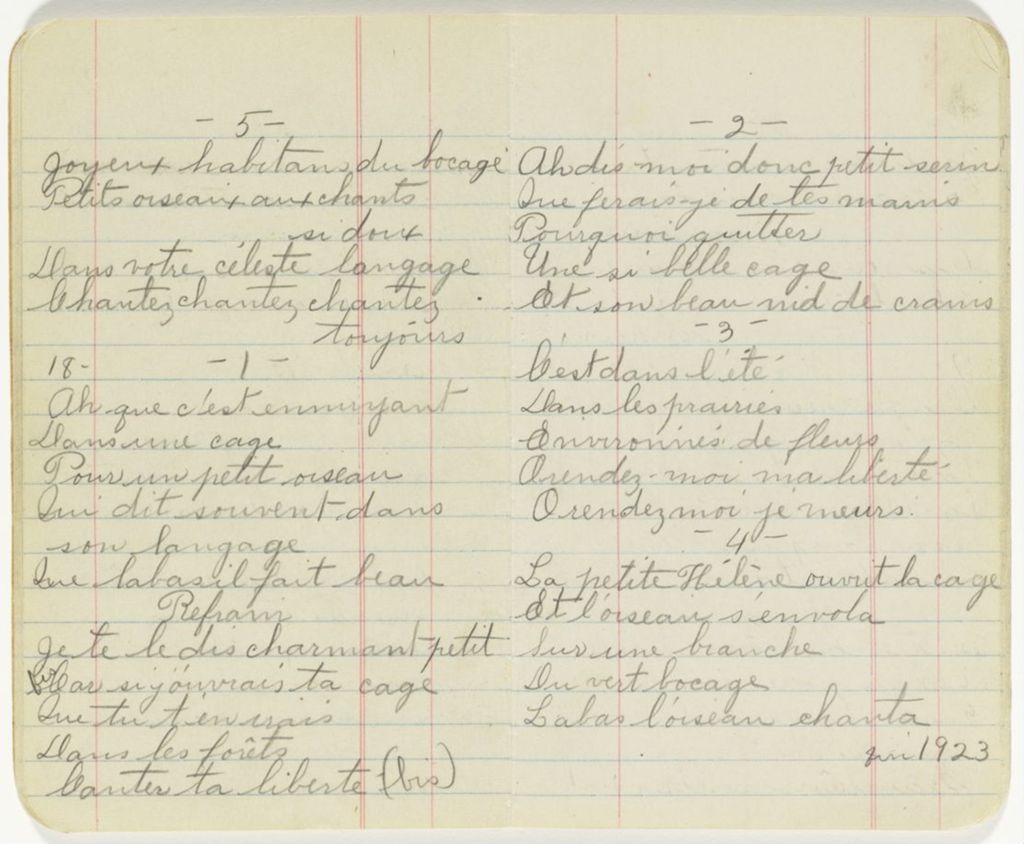 - 5 -
Joyeux habitans du bocage
Petits oiseaux aux chants
si doux
Dans votre céleste langage
Chantez chantez chantez
toujours
18-
- 1 -
Ah que c'est ennuyant
Dans une cage
Pour un petit oiseau
Qui dit souvent dans
son langage
Que labas il fait beau
Refrain
Je te le dis charmant petit
bis Car si j'ouvrais ta cage
Que tu t'en irais
Dans les forêts
Canter ta liberte (bis)
- 2 -
Ah dis moi donc petit serin
Que ferais-je de tes mains
Pourquoi quitter
Une si belle cage
Et son beau nid de crains
- 3 -
C'est dans l'été
Dans les prairies
Environnés de fleurs
O rendez-moi ma liberté
O rendez moi je meurs.
- 4 -
La petite Hélène ouvrit la cage
Et l'oiseau s'envola
Sur une branche
Du vert bocage
Labas l'oiseau chanta
1923